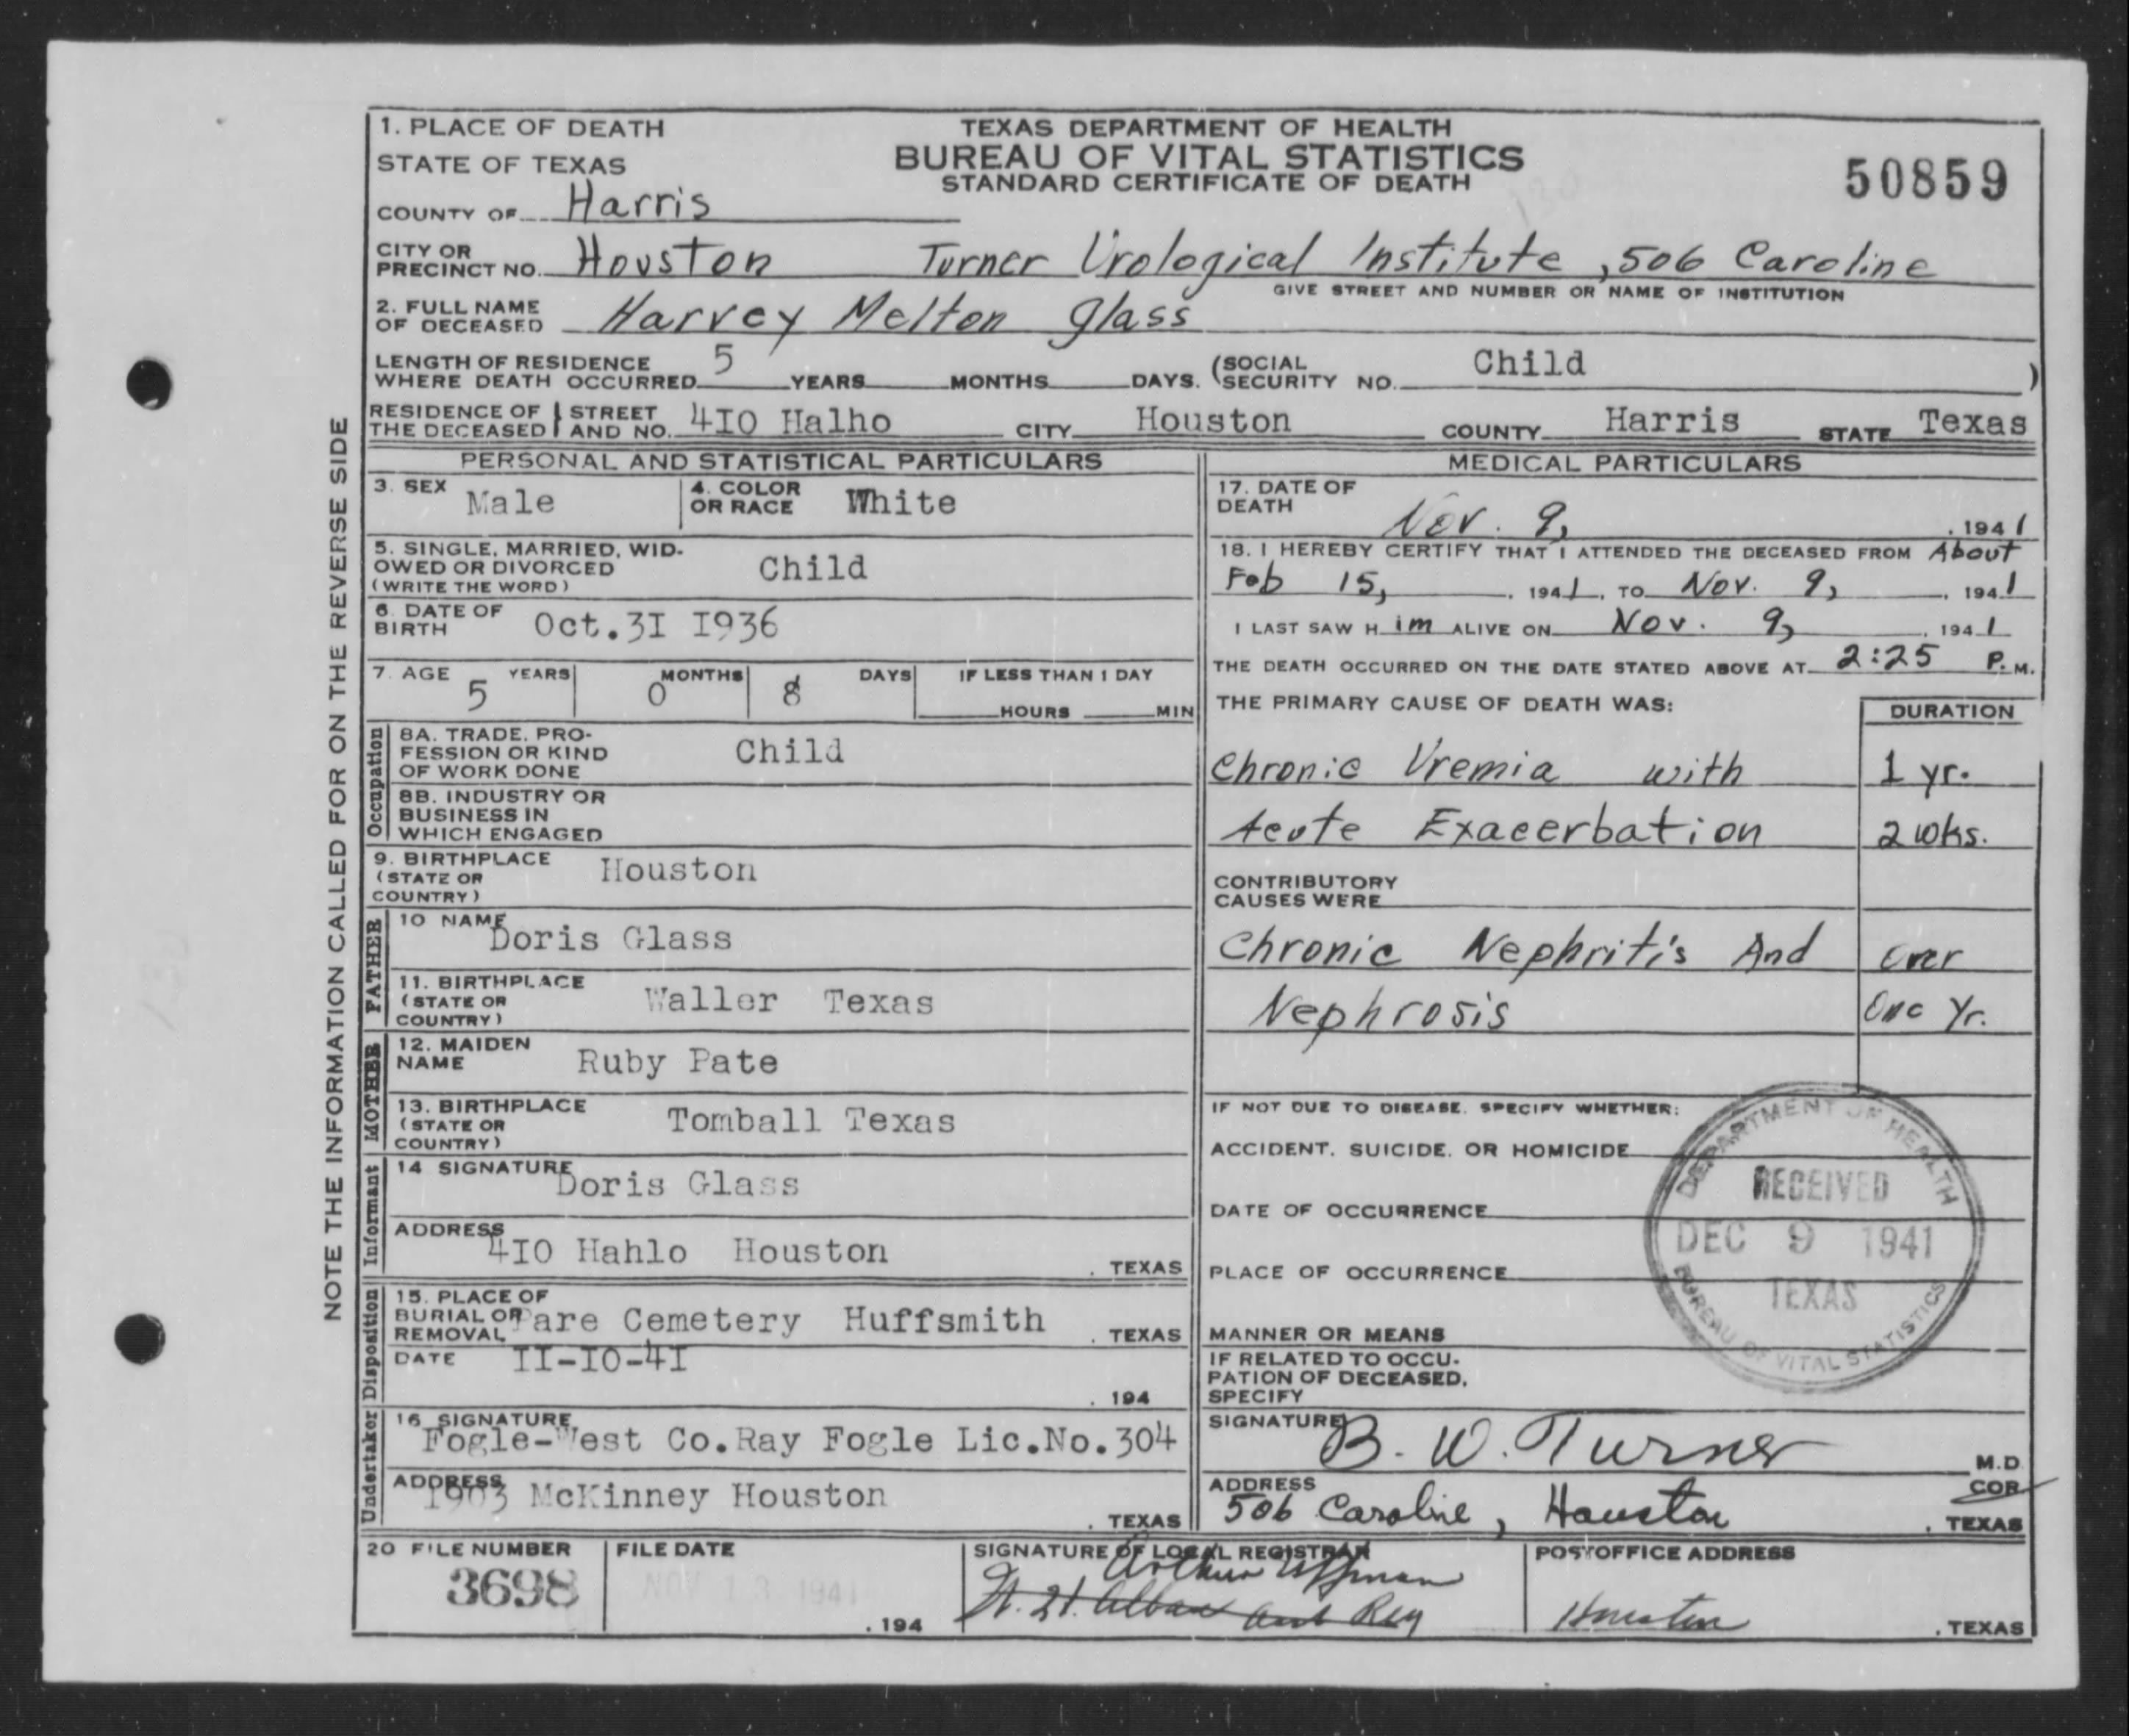 1. PLACE OF DEATH
STATE OF TEXAS
TEXAS DEPARTMENT OF HEALTH
BUREAU OF VITAL STATISTICS
STANDARD CERTIFICATE OF DEATH
50859
COUNTY OF Harris
CITY OR PRECINCT NO. Houston Turner Urological Institute, 506 Caroline
GIVE STREET AND NUMBER OR NAME OF INSTITUTION
2. FULL NAME OF DECEASED Harvey Melton Glass
LENGTH OF RESIDENCE WHERE DEATH OCCURRED 5 YEARS MONTHS DAYS. (SOCIAL SECURITY NO. Child )
RESIDENCE OF THE DECEASED STREET AND NO. 4I0 Halho CITY Houston COUNTY Harris STATE Texas
NOTE THE INFORMATION CALLED FOR ON THE REVERSE SIDE
PERSONAL AND STATISTICAL PARTICULARS
3. SEX Male 4. COLOR OR RACE White
5. SINGLE, MARRIED, WIDOWED OR DIVORCED (WRITE THE WORD) Child
6. DATE OF BIRTH Oct.3I I936
7. AGE 5 YEARS 0 MONTHS 8 DAYS IF LESS THAN 1 DAY HOURS MIN
Occupation
8A. TRADE, PROFESSION OR KIND OF WORK DONE Child
8B. INDUSTRY OR BUSINESS IN WHICH ENGAGED
9. BIRTHPLACE (STATE OR COUNTRY) Houston
FATHER
10 NAME Doris Glass
11. BIRTHPLACE (STATE OR COUNTRY) Waller Texas
MOTHER
12. MAIDEN NAME Ruby Pate
13. BIRTHPLACE (STATE OR COUNTRY) Tomball Texas
Informant
14 SIGNATURE Doris Glass
ADDRESS 4I0 Hahlo Houston , TEXAS
Disposition
15. PLACE OF BURIAL OR REMOVAL Pare Cemetery Huffsmith , TEXAS
DATE II-I0-4I , 194
Undertaker
16 SIGNATURE Fogle-West Co.Ray Fogle Lic.No.304
ADDRESS 1903 McKinney Houston , TEXAS
MEDICAL PARTICULARS
17. DATE OF DEATH Nov. 9, , 1941
18. I HEREBY CERTIFY THAT I ATTENDED THE DECEASED FROM About
Feb 15, , 1941, TO Nov. 9, , 1941
I LAST SAW H im ALIVE ON Nov. 9, , 1941
THE DEATH OCCURRED ON THE DATE STATED ABOVE AT 2:25 P.M.
THE PRIMARY CAUSE OF DEATH WAS: DURATION
Chronic Uremia with 1 yr.
Acute Exacerbation 2 wks.
CONTRIBUTORY CAUSES WERE
Chronic Nephritis And over
Nephrosis One Yr.
IF NOT DUE TO DISEASE, SPECIFY WHETHER:
ACCIDENT, SUICIDE, OR HOMICIDE
DATE OF OCCURRENCE
PLACE OF OCCURRENCE
MANNER OR MEANS
IF RELATED TO OCCUPATION OF DECEASED, SPECIFY
DEPARTMENT OF HEALTH
RECEIVED
DEC 9 1941
TEXAS
BUREAU OF VITAL STATISTICS
SIGNATURE B. W. Turner M.D.
COR
ADDRESS 506 Caroline, Houston , TEXAS
20 FILE NUMBER 3698
FILE DATE NOV 13 1941 , 194
SIGNATURE OF LOCAL REGISTRAR
Arthur
POSTOFFICE ADDRESS Houston , TEXAS